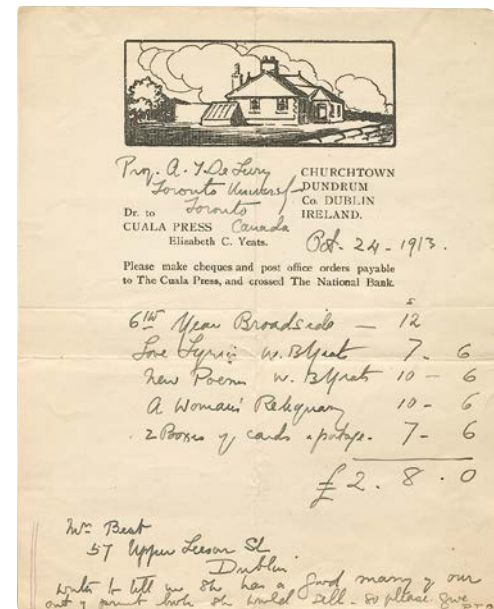 Prof. A. T De Lury
Toronto Universi
Toronto
Canada
CHURCHTOWN
DUNDRUM
Co. DUBLIN
IRELAND.
Dr. to
CUALA PRESS
Elizabeth C. Yeats.
Oct. 24 - 1913.
Please make cheques and post office orders payable
to The Cuala Press, and crossed The National Bank.
s
6th Year Broadside — 12
Love Lyrics W. B Yeats 7 - 6
New Poems W. B Yeats 10 - 6
A Woman's Reliquary 10 - 6
2 Boxes of cards & postage - 7 - 6
£ 2 . 8 . 0
Mrs Best
57 Upper Leeson St
Dublin
writes to tell me she has a good many of our
out of print books she would sell - so please give
P.T.O